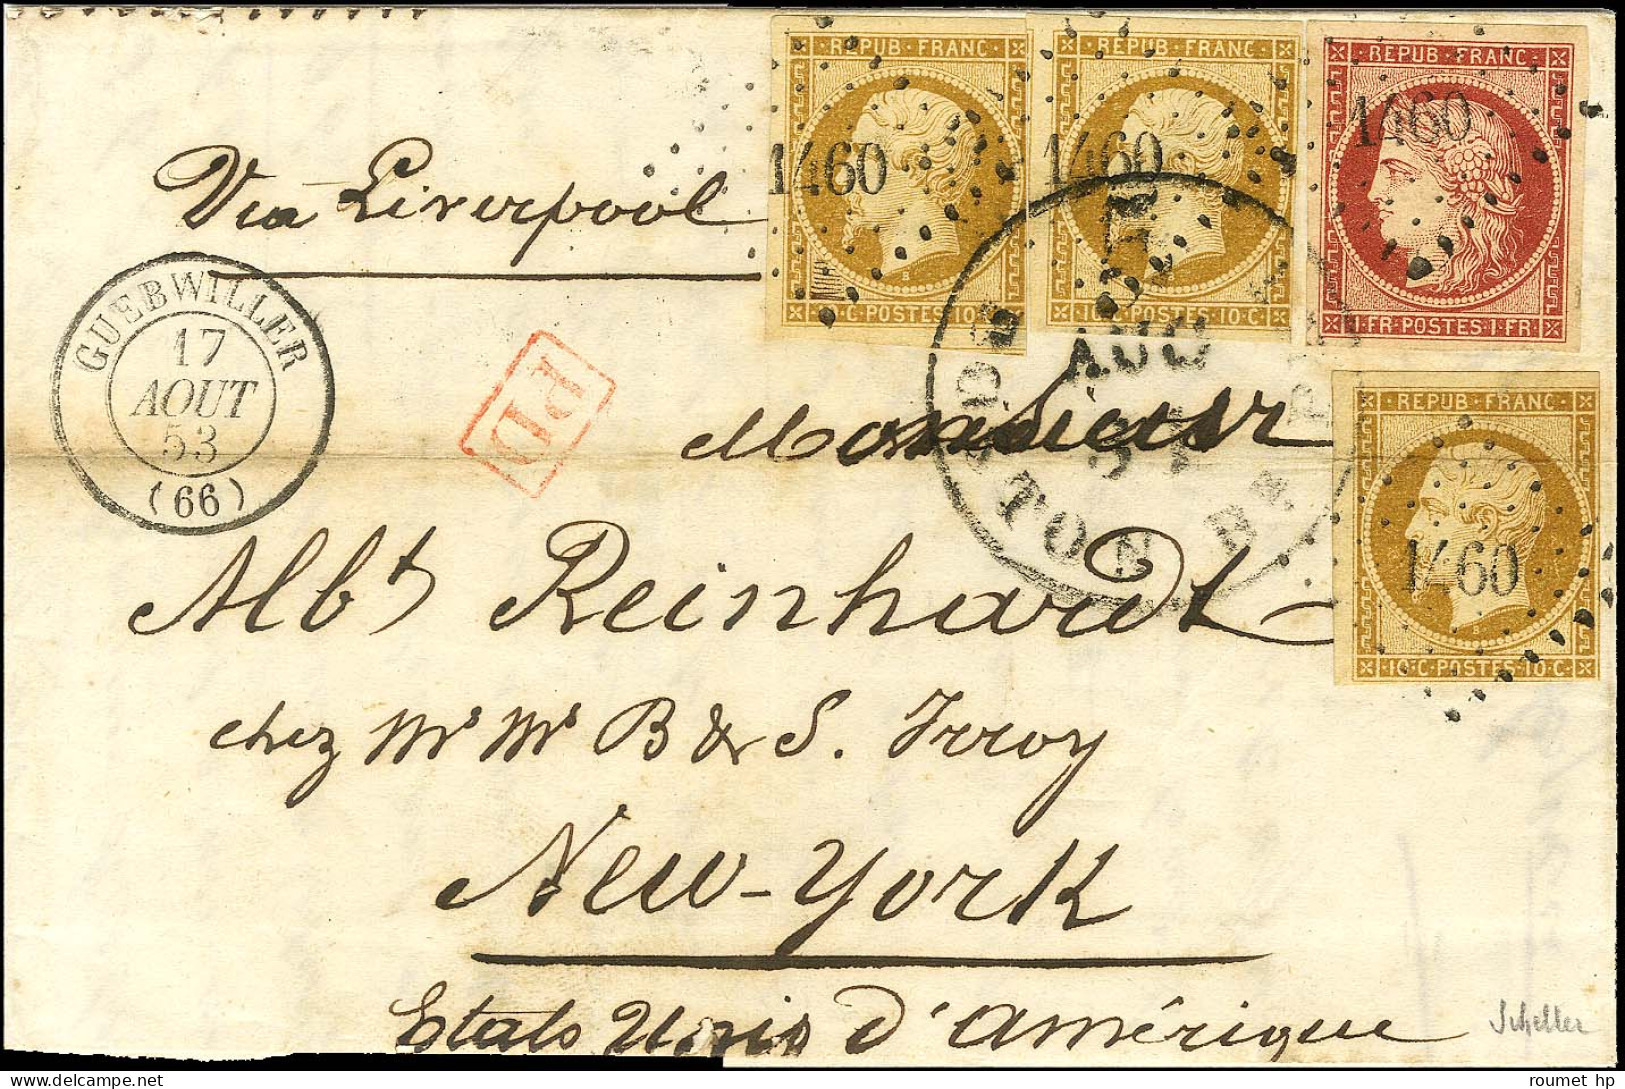 REPUB FRANC
REPUB FRANC
REPUB FRANC
1460
1460
1460
10·C·POSTES·10·C
10·C·POSTES·10·C·
1·FR·POSTES·1·FR
Via Liverpool
GUEBWILLER
17
AOUT
53
(66)
PD
AUG
BOSTON BR. PKT
Monsieur
REPUB FRANC
1460
10·C·POSTES·10·C
Albt Reinhardt
chez Mrs Mrs B & S. Irroy
New-York
Etats Unis d'Amérique
Scheller
roumet hp